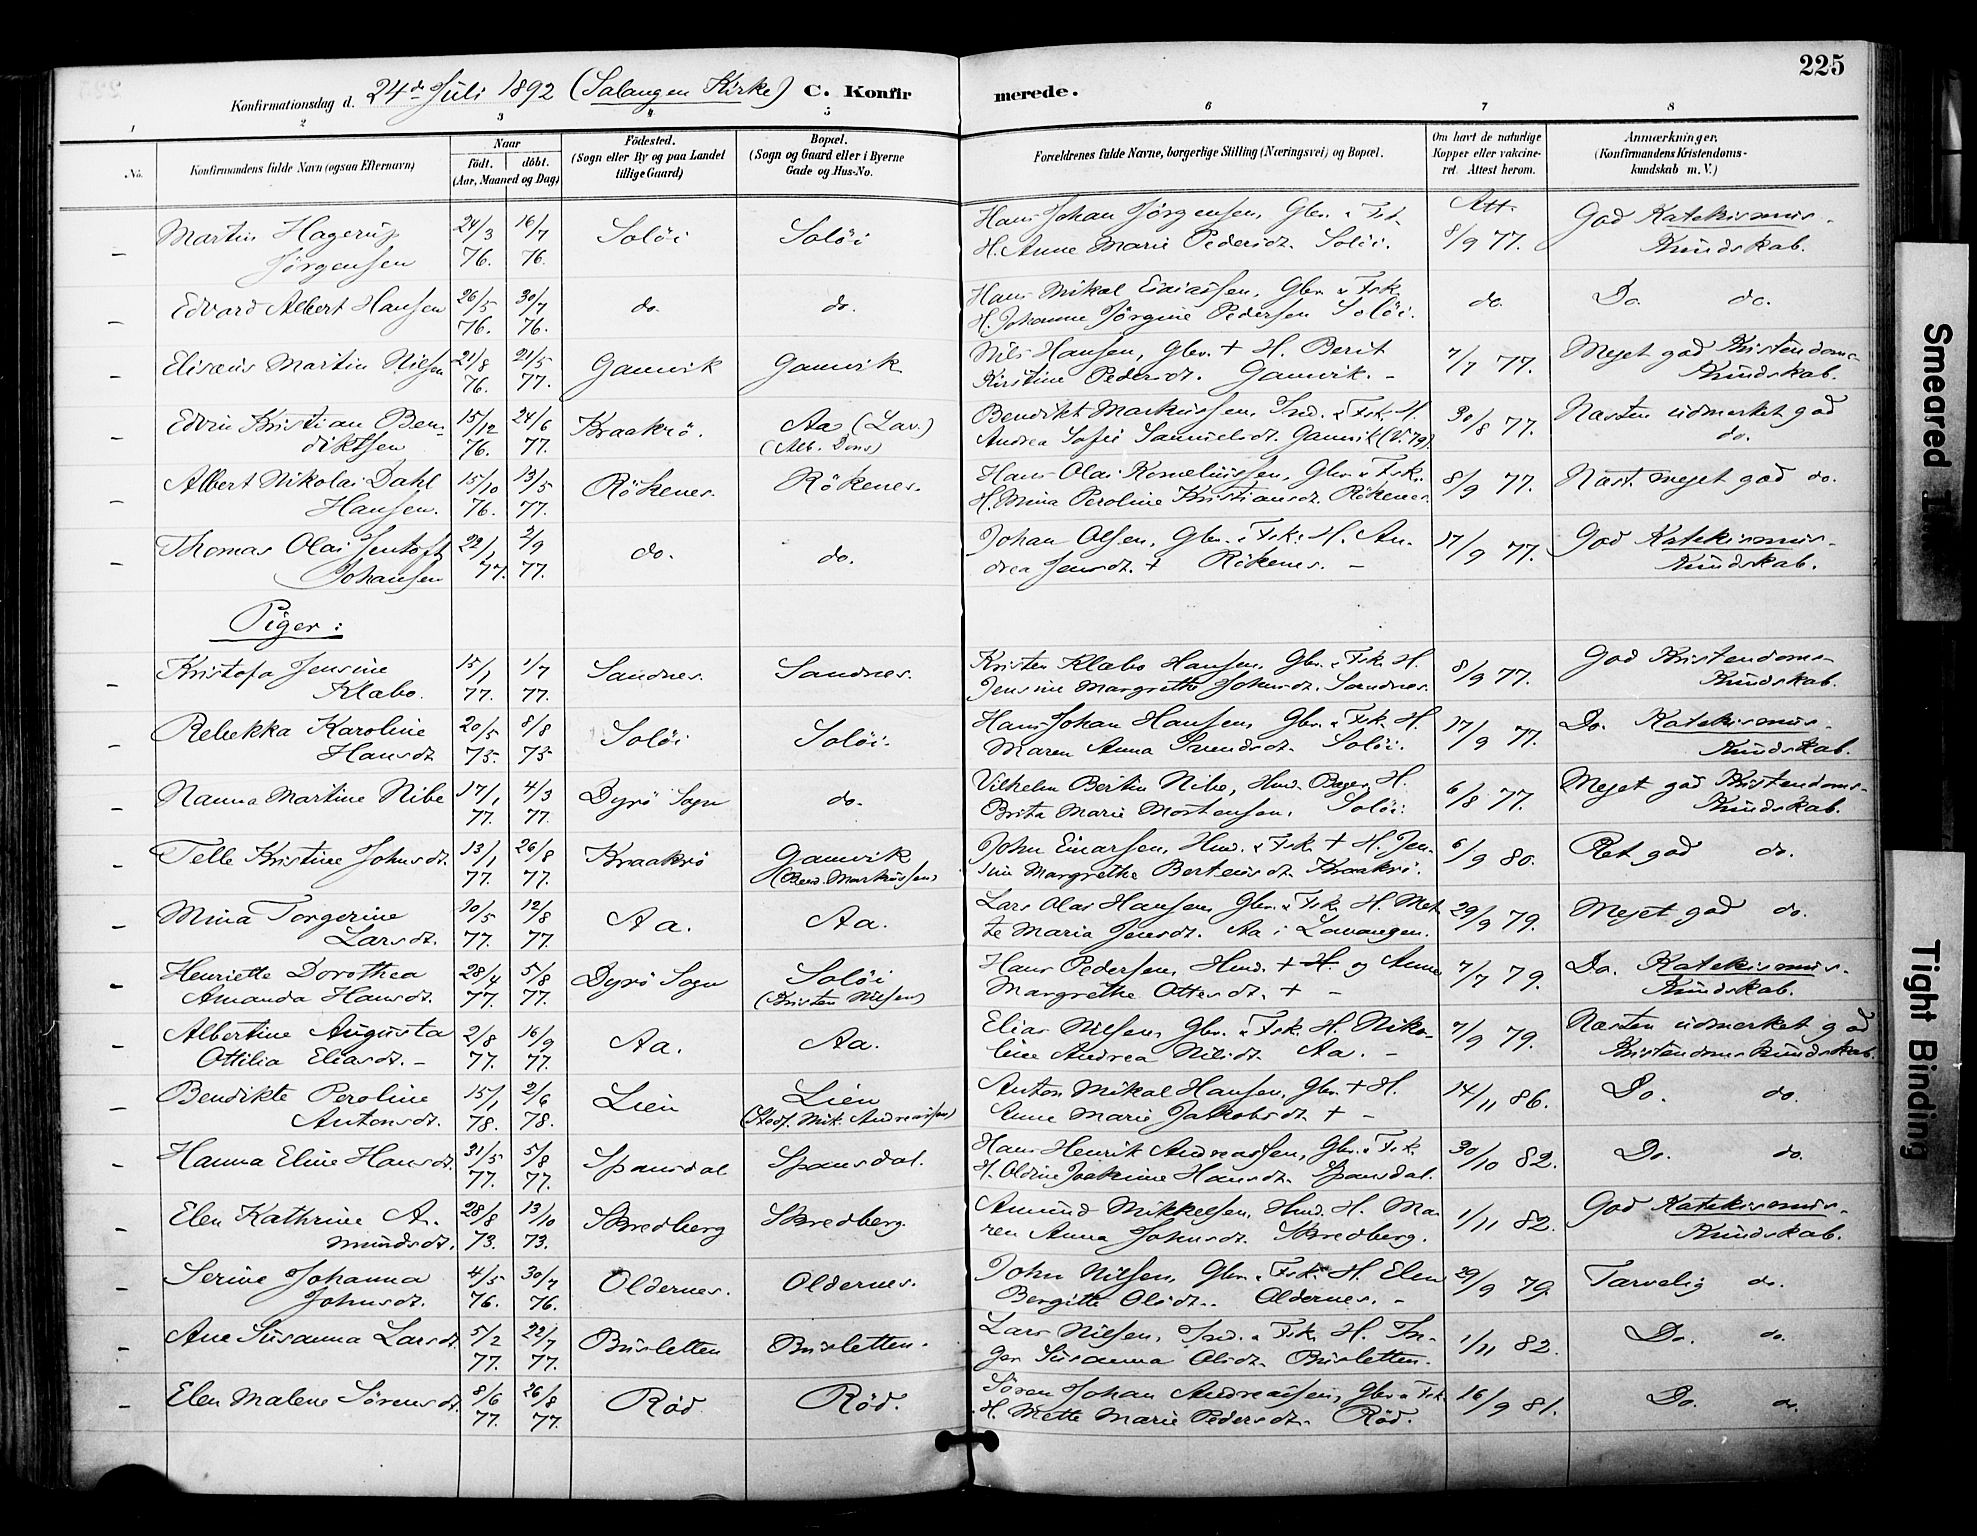 225
Konfirmationsdag d. 24de Juli 1892 (Salangen Kirke) C. Konfirmerede.
1 2 3 4 5 6 7 8
No. Konfirmandens fulde Navn (ogsaa Efternavn) Naar født. døbt. (Aar, Maaned og Dag) Fødested. (Sogn eller By og paa Landet tillige Gaard) Bopæl. (Sogn og Gaard eller i Byerne Gade og Hus-No. Forældrenes fulde Navne, borgerlige Stilling (Næringsvei) og Bopæl. Om havt de naturlige Kopper eller vakcineret. Attest herom. Anmærkninger, (Konfirmandens Kristendomskundskab m. V.)
– Martin Hagerup 24/3 16/7 Soløi Soløi Hans Johan Jørgensen, Gbr. & Fsk. Att. God Katekismus-
Jørgensen 76. 76. H. Anne Marie Pedersdt. Soløi. 8/9 77. Kundskab.
– Edvard Albert Hansen 26/5 30/7 do. do. Hans Mikal Esaiassen, Gbr. & Fsk. do. Do. do.
76. 76. H. Johanne Jørgine Pedersen Soløi.
– Elisæus Martin Nilsen 21/8 21/5 Gamvik Gamvik Nils Hansen, Gbr. + H. Berit 7/7 77. Meget god Kristendoms-
76. 77. Kirstine Pedersdt. Gamvik. – Kundskab.
– Edvin Kristian Ben- 15/12 24/6 Kraakrø. Aa (Lav.) Bendikt Markussen, Ind. & Fsk. H. 30/8 77. Næsten udmerket god
diktsen 76. 77. (Alb. Dons) Andrea Sofie Samuelsdt. Gamvik (V. 79) do.
– Albert Nikolai Dahl 15/10 13/5 Røkenes. Røkenes. Hans Olai Korneliussen, Gbr. & Fsk. 8/9 77. Næst. meget god do.
Hansen. 76. 77. H. Mina Peroline Kristiansdt. Røkenes.
– Thomas Olai Jentoft 22/1 2/9 do. do. Johan Olsen, Gbr. & Fsk. H. An- 17/9 77. God Katekismus-
Johansen 77. 77. drea Jensdt. + Røkenes. – Kundskab.
Piger:
– Kristofa Jensine 15/1 1/7 Sandnes. Sandnes. Kristen Klabo Hansen, Gbr. & Fsk. H. 8/9 77. God Kristendoms-
Klabo. 77. 77. Jensine Margrethe Johnsdt. Sandnes. Kundskab.
– Rebekka Karoline 20/5 8/8 Soløi Soløi. Hans Johan Hansen, Gbr. & Fsk. H. 17/9 77. Do. Katekismus-
Hansdt 75. 75 Maren Anna Svendsdt. Soløi. Kundskab.
– Nanna Martine Nibe 17/1 4/3 Dyrø Sogn do. Vilhelm Bertin Nibe, Hmd. Bager, H. 6/8 77. Meget god Kristendoms-
77. 77. Brita Marie Mortensen, Soløi. Kundskab.
– Telle Kristine Johnsdt. 13/1 26/8 Kraakrø Gamvik John Einarsen, Hmd. & Fsk. + H. Jen- 6/9 80. Ret god do.
77. 77. (Bend. Markussen) sine Margrethe Berteusdt Kraakrø.
– Mina Torgerine 10/5 12/8 Aa. Aa. Lars Olai Hansen, Gbr. & Fsk. H. Met- 29/9 79. Meget god do.
Larsdt. 77. 77. te Maria Jensdt. Aa i Lavangen.
– Henriette Dorothea 28/4 5/8 Dyrø Sogn Soløi Hans Pedersen, Hmd. + H. og Anne 7/7 79. Do. Katekismus-
Amanda Hansdt. 77. 77. (Kristen Nilsen) Margrethe Ottesdt. + – Kundskab.
– Albertine Augusta 2/8 16/9 Aa. Aa. Elias Nilsen, Gbr. & Fsk. H. Niko- 7/9 79. Næsten udmerket god
Ottilia Eliasdt. – 77. 77. line Andrea Nilsdt Aa. – Kristendomskundskab.
– Bendikte Peroline 15/1 2/6 Lien Lien Anton Mikal Hansen, Gbr. + H. 14/11 86. Do. do.
Antonsdt. 78. 78. (Stedf. Mik. Andreassen) Anne Marie Jakobsdt + –
– Hanna Eline Hansdt. 31/5 5/8 Spansdal Spansdal. Hans Henrik Andreassen, Gbr. & Fsk. 30/10 82. Do. do.
77. 77. H. Oldine Joakime Hansdt. Spansdal.
– Elen Kathrine A- 28/8 13/10 Skredberg Skredberg. Amund Mikkelsen, Hmd. H. Ma- 1/11 82. God Katekismus-
mundsdt. 73. 73. ren Anna Johnsdt. Skredberg. Kundskab.
– Serine Johanna 4/5 30/7 Oldernes. Oldernes. John Nilsen, Gbr. & Fsk. H. Elen 29/9 79. Tarvelig do.
Johnsdt. 76. 76. Bergitte Olsdt. Oldernes. –
– Ane Susanna Larsdt. 5/2 22/7 Busletten Busletten. Lars Nilsen, Ind. & Fsk. H. In- 1/11 82. Do. do.
77. 77. ger Susanna Olsdt. Busletten.
– Elen Malene Sørensdt. 8/6 26/8 Rød Rød. Søren Johan Andreassen, Gbr. & Fsk. 16/9 81. Do. do.
77. 77. H. Mette Marie Pedersdt. Rød.
Smeared
Tight Binding